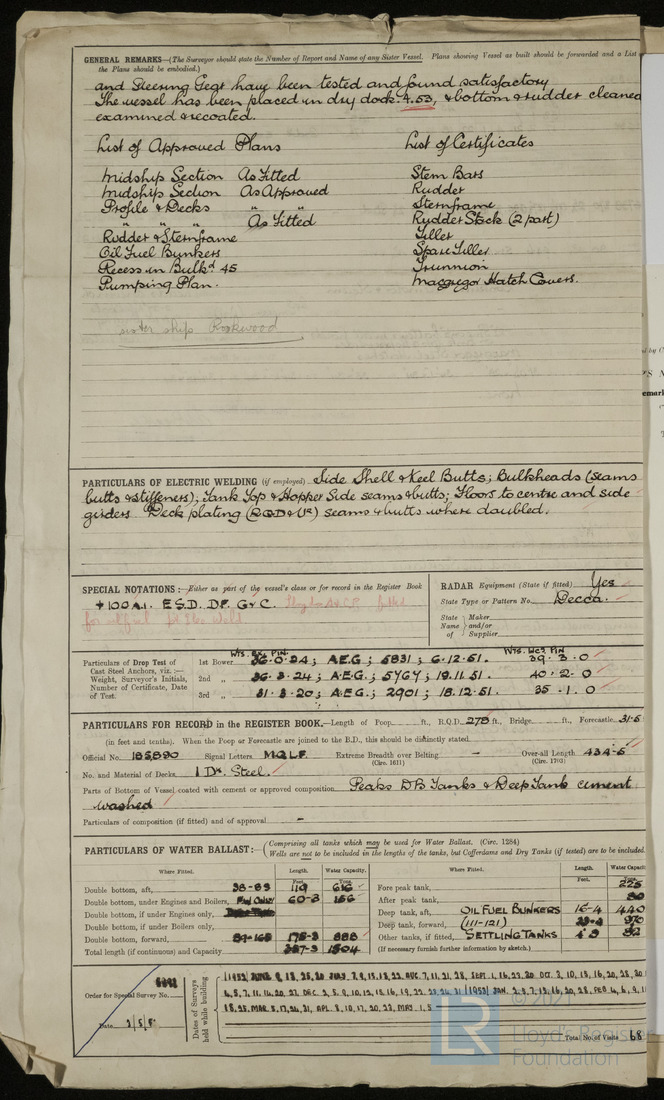 GENERAL REMARKS—(The Surveyor should state the Number of Report and Name of any Sister Vessel. Plans showing Vessel as built should be forwarded and a List
the Plans should be embodied.)
and Steering Gear have been tested and found satisfactory
The vessel has been placed in dry dock 4.53, & bottom & rudder cleaned
examined & recoated.
List of Approved Plans List of Certificates
Midship Section As Fitted Stem Bars
Midship Section As Approved Rudder
Profile & Decks " " Sternframe
" " " As Fitted Rudder Stock (2 part)
Rudder & Sternframe Tiller
Oil Fuel Bunkers Spare Tiller
Recess in Bulkd 45 Trunnion
Pumping Plan. Macgregor Hatch Covers.
sister ship Rookwood
PARTICULARS OF ELECTRIC WELDING (if employed) Side Shell & Keel Butts; Bulkheads (seams
butts & stiffeners); Tank Top & Hopper Side seams & butts; Floors to centre and side
girders Deck plating (RQD & Ur) seams & butts where doubled.
SPECIAL NOTATIONS:—Either as part of the vessel's class or for record in the Register Book
+100A.1. E.S.D. D.F. GyC.
RADAR Equipment (State if fitted) Yes
State Type or Pattern No. Decca.
State Maker
Name and/or
of Supplier
Particulars of Drop Test of
Cast Steel Anchors, viz.:—
Weight, Surveyor's Initials,
Number of Certificate, Date
of Test.
WTS. EX. PIN. WTS. INCL PIN
1st Bower 36.0.24; A.E.G.; 5831; 6.12.51. 39.3.0
2nd " 36.3.24; A.E.G.; 5767; 19.11.51. 40.2.0
3rd " 31.3.20; A.E.G.; 2901; 18.12.51. 35.1.0
PARTICULARS FOR RECORD in the REGISTER BOOK.—Length of Poop ft., R.Q.D. 278 ft., Bridge ft., Forecastle 31.5
(in feet and tenths). When the Poop or Forecastle are joined to the B.D., this should be distinctly stated
Official No. 185890 Signal Letters MQLF Extreme Breadth over Belting - Over-all Length 434.5
(Circ. 1611) (Circ. 1703)
No. and Material of Decks 1 Dk. Steel.
Parts of Bottom of Vessel coated with cement or approved composition Peaks DB Tanks & Deep Tank cement
washed
Particulars of composition (if fitted) and of approval -
PARTICULARS OF WATER BALLAST:—(Comprising all tanks which may be used for Water Ballast. (Circ. 1284)
Wells are not to be included in the lengths of the tanks, but Cofferdams and Dry Tanks (if tested) are to be included.
Where Fitted. Length. Water Capacity. Where Fitted. Length. Water Capacity
Feet. Tons. Feet.
Double bottom, aft, 119 616 Fore peak tank, 225
Double bottom, under Engines and Boilers, 60-3 156 After peak tank,
Double bottom, if under Engines only, Deep tank, aft, OIL FUEL BUNKERS 16-4 440
Double bottom, if under Boilers only, Deep tank, forward, (111-121)
Double bottom, forward, 89-165 888 Other tanks, if fitted, SETTLING TANKS
Total length (if continuous) and Capacity 1504 (If necessary furnish further information by sketch.)
Order for Special Survey No.
Date
Dates of Surveys
held while building
Total No. of Visits 68
© 2021
LR
Lloyd's Register
Foundation